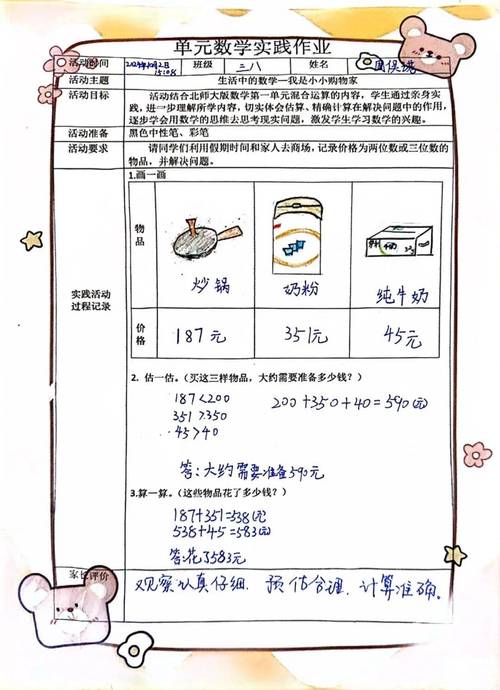 单元数学实践作业
活动时间 2024年10月2日 15:08 班级 三八 姓名
活动主题 生活中的数学—我是小小购物家
活动目标 活动结合北师大版数学第一单元混合运算的内容，学生通过亲身实
践，进一步理解所学内容，切实体会估算、精确计算在解决问题中的作用，
逐步学会用数学的思维去思考现实问题，激发学生学习数学的兴趣。
活动准备 黑色中性笔、彩笔
活动要求 请同学们利用假期时间和家人去商场，记录价格为两位数或三位数的
物品，并解决问题。
实践活动
过程记录
1.画一画
物品
炒锅 奶粉 纯牛奶
价格 187元 351元 45元
2. 估一估。（买这三样物品，大约需要准备多少钱？）
187<200 200+350+40=590(元)
351>350
45>40
答：大约需要准备590元
3.算一算。（这些物品花了多少钱？）
187+351=538(元)
538+45=583(元)
答：花了583元
家长评价 观察认真仔细，预估合理，计算准确。